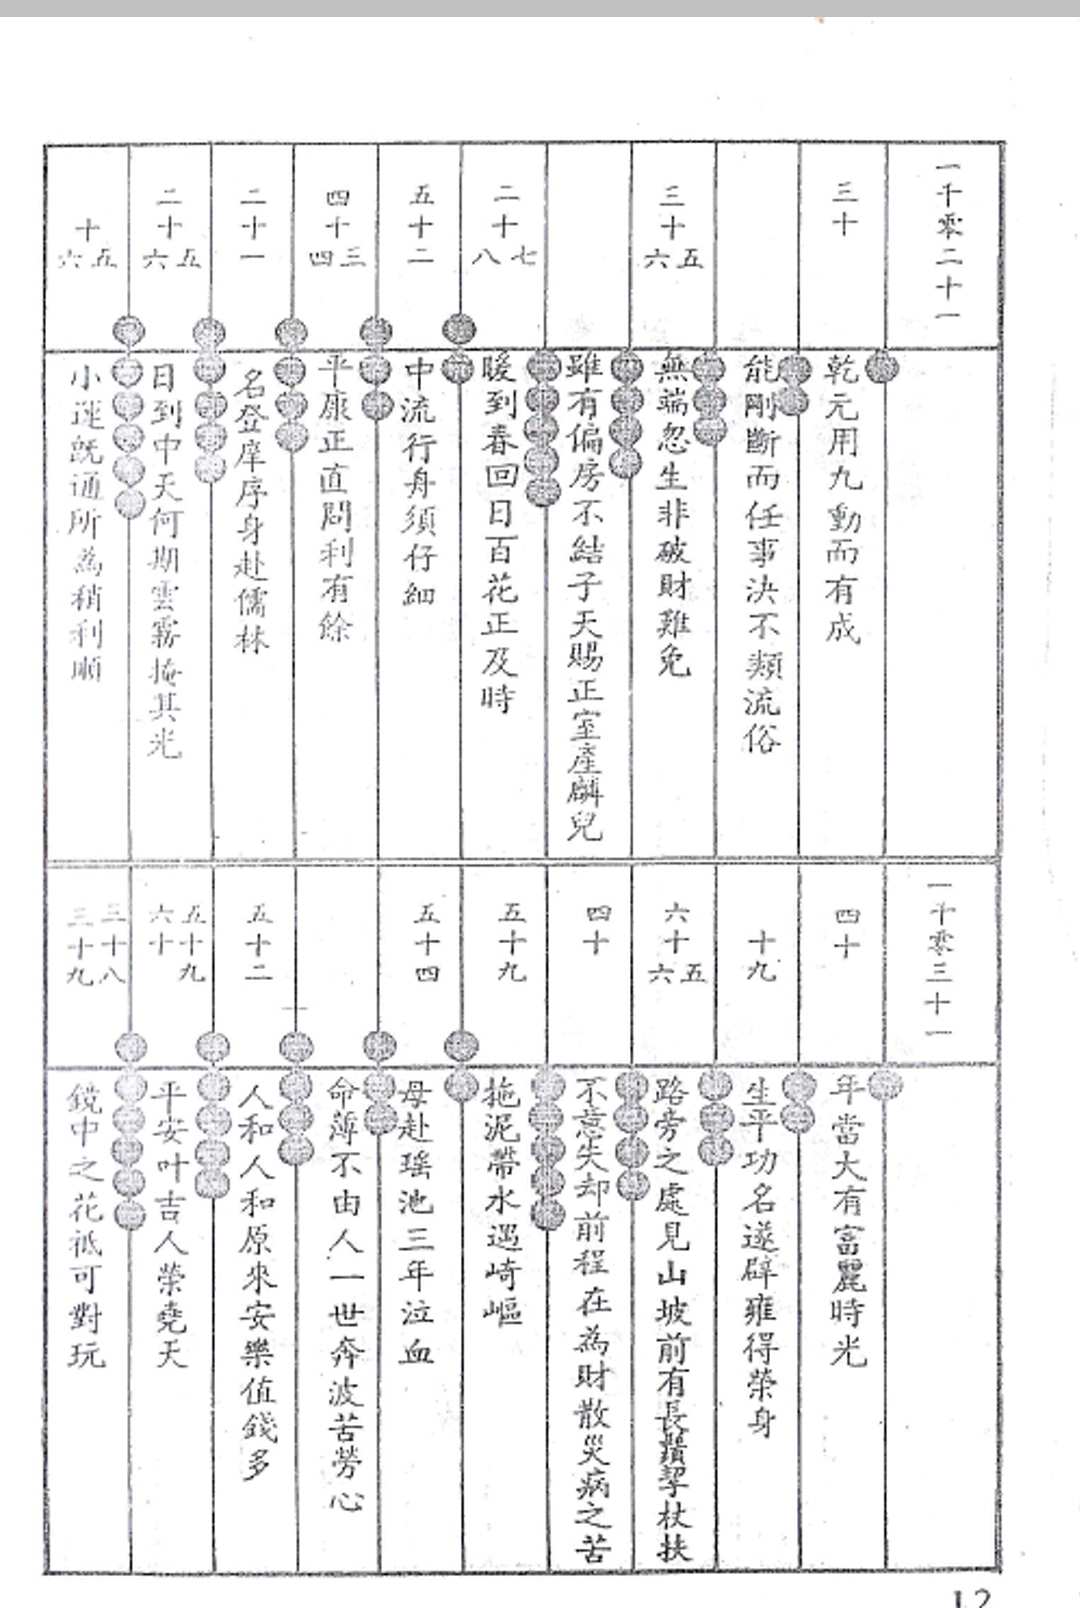 一千零二十一
三十
乾元用九動而有成
能剛斷而任事決不類流俗
三十五六
無端忽生非破財難免
雖有偏房不結子天賜正室產麟兒
二十七八
暖到春回日百花正及時
五十二
中流行舟須仔細
四十三四
平康正直問利有餘
二十一
名登庠序身赴儒林
二十五六
日到中天何期雲霧掩其光
十五六
小運既通所為稍利順
一千零三十一
四十
年當大有富麗時光
十九
生平功名遂辟雍得榮身
六十五六
路旁之處見山坡前有長鬚挈杖扶
四十
不意失却前程在為財散災病之苦
五十九
拖泥帶水遇崎嶇
五十四
母赴瑤池三年泣血
命薄不由人一世奔波苦勞心
五十二
人和人和原來安樂值錢多
五十九
六十
平安叶吉人榮堯天
三十八
三十九
鏡中之花祗可對玩
12